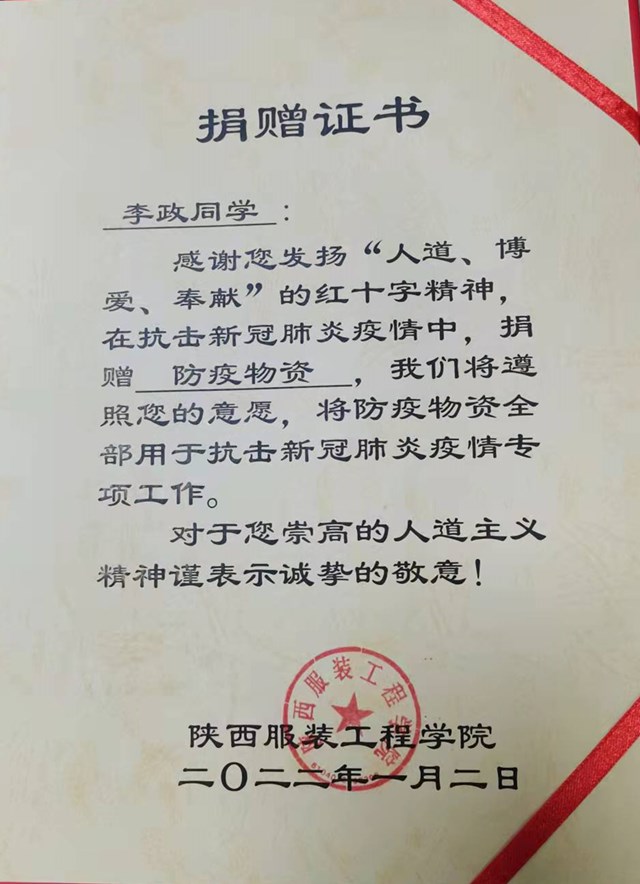 捐赠证书
李政同学：
感谢您发扬“人道、博
爱、奉献”的红十字精神，
在抗击新冠肺炎疫情中，捐
赠 防疫物资 ，我们将遵
照您的意愿，将防疫物资全
部用于抗击新冠肺炎疫情专
项工作。
对于您崇高的人道主义
精神谨表示诚挚的敬意！
陕西服装工程学院
陕西服装工程学院
二〇二二年一月二日